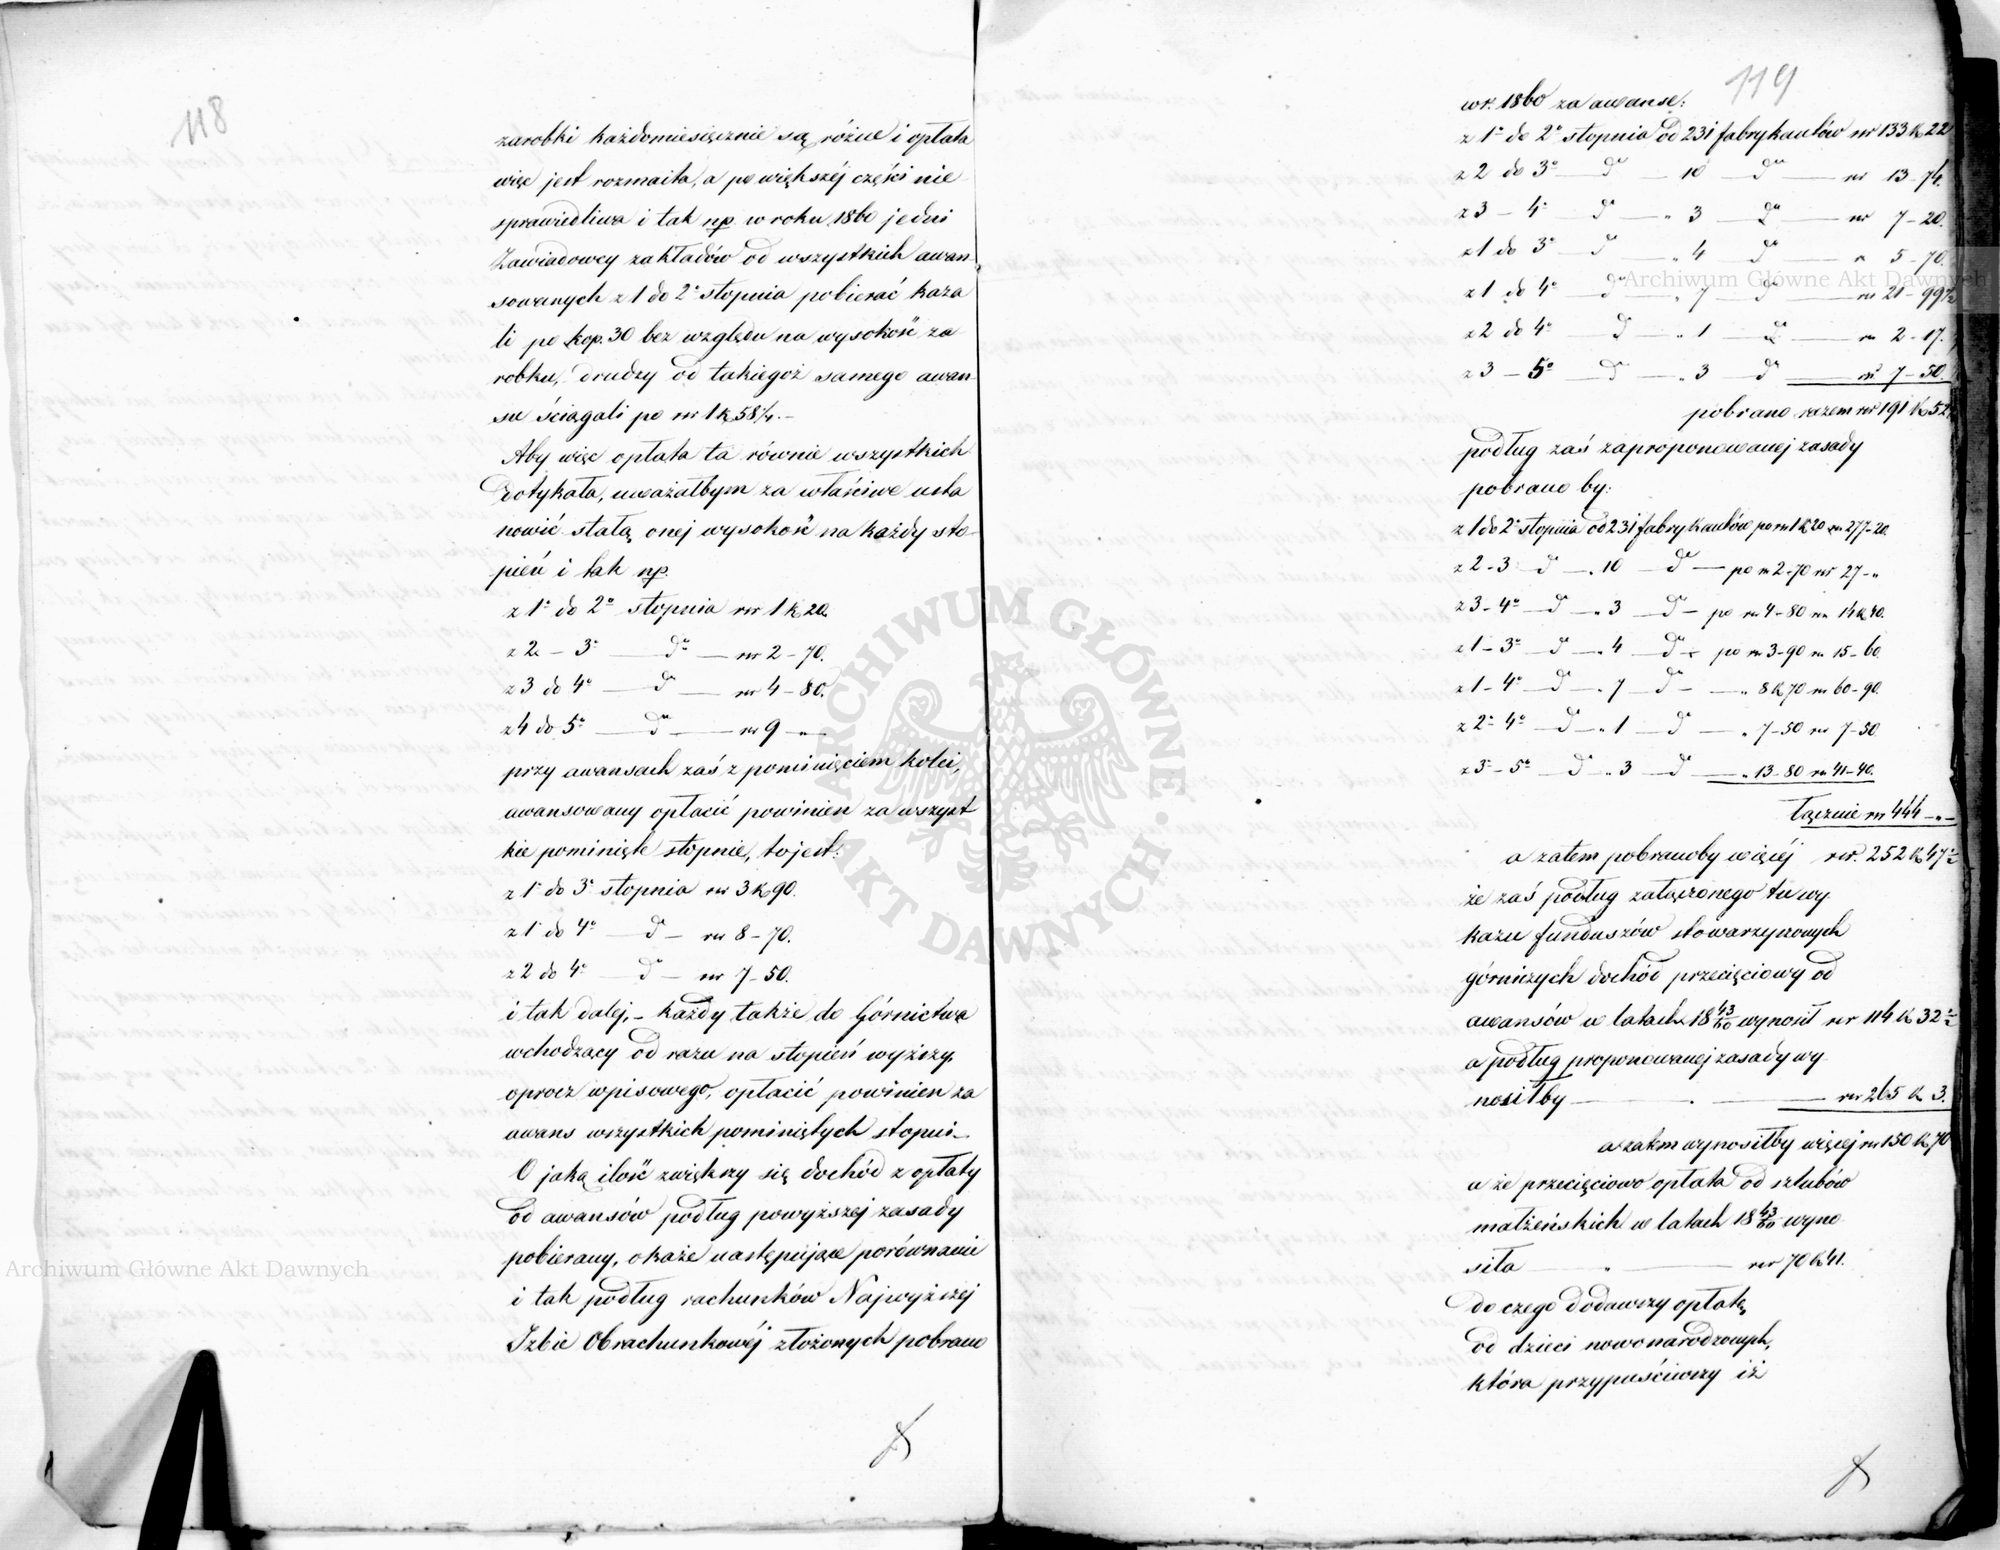 118
zarobki każdomiesięcznie są różne i opłata
więc jest rozmaita, a po większéj części nie
sprawiedliwa i tak np. w roku 1860 jedni
Zawiadowcy zakładów od wszystkich awan-
sowanych z 1 do 2° stopnia pobierać kaza
li po kop. 30 bez względu na wysokość za
robku, drudzy od takiegoż samego awan-
su ściągali po rsr 1 k 58¼.-
Aby więc opłata ta równie wszystkich
dotykała, uważałbym za właściwe usta
nowić stałą onej wysokość na każdy sto-
pień i tak np.
z 1° do 2° stopnia rsr 1 k 20.
z 2 — 3° — do — rsr 2 - 70.
z 3 do 4° — do — rsr 4 - 80.
z 4 do 5° — do — rsr 9 - „ -
przy awansach zaś z pominięciem kolei,
awansowany opłacić powinien za wszyst
kie pominięte stopnie, to jest:
z 1 do 3° stopnia rsr 3 k 90.
z 1 do 4° — do — rsr 8 - 70.
z 2 do 4° — do — rsr 7 - 50.
i tak dalej, - każdy także do Górnictwa
wchodzący od razu na stopień wyższy,
oprócz wpisowego, opłacić powinien za
awans wszystkich pominiętych stopni_
O jaką ilość zwiększy się dochód z opłaty
od awansów podług powyższej zasady
pobierany, okaże następujące porównanie
i tak podług rachunków Najwyższej
Izbie Obrachunkowéj złożonych pobrano
119
w r. 1860 za awanse:
z 1° do 2° stopnia od 231 fabrykantów rsr 133 k 22
z 2 do 3° — do — 10 — do — rsr 13 - 74.
z 3 — 4° do — „ 3 — do — rsr 7 - 20.
z 1 do 3° do „ 4 do — r 5 - 70.
z 1 do 4° do — „ 7 — do — rsr 21 - 99½
z 2 do 4° — do — „ 1 — do — rsr 2 - 17.
z 3 — 5° — do — „ 3 — do — rsr 7 - 50.
pobrano razem rsr 191 k 52½
podług zaś zaproponowanej zasady
pobrano by:
z 1 do 2° stopnia od 231 fabrykantów po rsr 1 k 20 rsr 277 - 20.
z 2 - 3 — do — „ 10 — do — po rsr 2 - 70 rsr 27 - „
z 3 - 4° — do — „ 3 — do — po rsr 4 - 80 rsr 14 k 40.
z 1 - 3° — do — „ 4 — do — po rsr 3 - 90 rsr 15 - 60
z 1 - 4° — do — „ 7 — do — — „ 8 k 70 rsr 60 - 90.
z 2 - 4° — do — „ 1 — do — „ 7 - 50 rsr 7 - 50
z 3 - 5° — do — „ 3 — do — „ 13 - 80 rsr 41 - 40.
Łącznie rsr 444 - „ -
a zatem pobranoby więcéj rsr. 252 k 47½
że zaś podług załączonego tu wy-
kazu funduszów stowarzyszonych
górniczych dochód przecięciowy od
awansów w latach 18 43/60 wynosił rsr 114 k 32½
a podług proponowanej zasady wy-
nosiłby — rsr 265 k 3.
a zatem wynosiłby więcej rsr 150 k 70
a że przecięciowo opłata od szlubów
małżeńskich w latach 18 43/60 wyno
siła — „ — rsr 70 k 41.
do czego dodawszy opłatę
od dzieci nowonarodzonych,
która przypuściwszy iż
Archiwum Główne Akt Dawnych
Archiwum Główne Akt Dawnych
ARCHIWUM GŁÓWNE AKT DAWNYCH